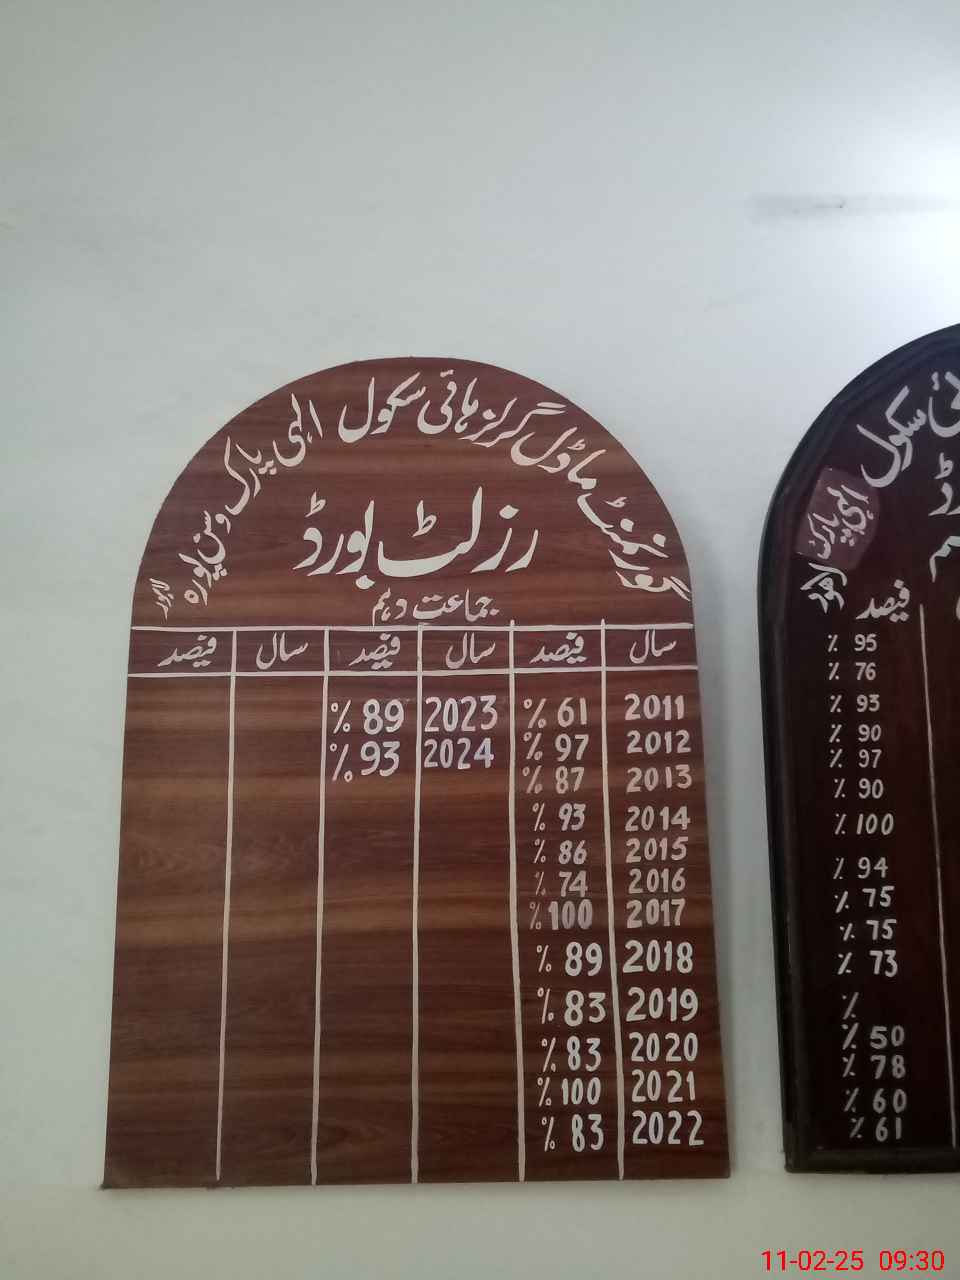 گورنمنٹ ماڈل گرلز ہائی سکول الٰہی پارک وسن پورہ لاہور
رزلٹ بورڈ
جماعت دہم
سال فیصد سال فیصد سال فیصد
2011 61 % 2023 89 %
2012 97 % 2024 93 %
2013 87 %
2014 93 %
2015 86 %
2016 74 %
2017 100 %
2018 89 %
2019 83 %
2020 83 %
2021 100 %
2022 83 %
سکول
الٰہی پارک لاہور
فیصد
% 95
% 76
% 93
% 90
% 97
% 90
% 100
% 94
% 75
% 75
% 73
%
% 50
% 78
% 60
% 61
11-02-25 09:30